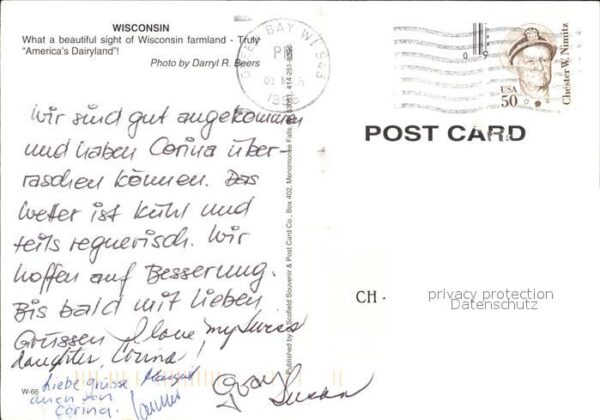 WISCONSIN
What a beautiful sight of Wisconsin farmland - Truly
"America's Dairyland"!
Photo by Darryl R. Beers
GREEN BAY WI 543
PM
1996
USA
50
Chester W. Nimitz
POST CARD
Wir sind gut angekommen
und haben Corina über-
raschen können. Das
Wetter ist kühl und
teils regnerisch. Wir
hoffen auf Besserung.
Bis bald mit lieben
Grüssen I love my Swiss
daughter, Corina!
Susan
Liebe Grüsse
auch von
Corina.
W-66
Published by Scofield Souvenir & Post Card Co., Box 402, Menomonee Falls,
CH -
privacy protection
Datenschutz